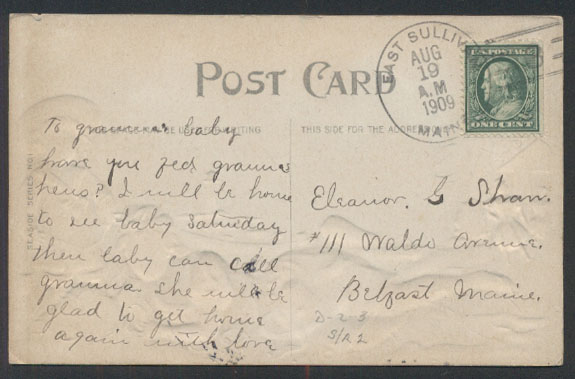 POST CARD
EAST SULLIV
AUG
19
A.M
1909
MAIN
U.S. POSTAGE
ONE CENT
THIS SIDE FOR THE ADDRESS
SEASIDE SERIES NO.
To gramma's baby
have you fed gramma's
hens? I will be home
to see baby Saturday
then baby can call
gramma. she will be
glad to get home
again with love
Eleanor. G Shaw.
#111 Waldo Avenue.
Belfast Maine.
D-2-3
S/R2